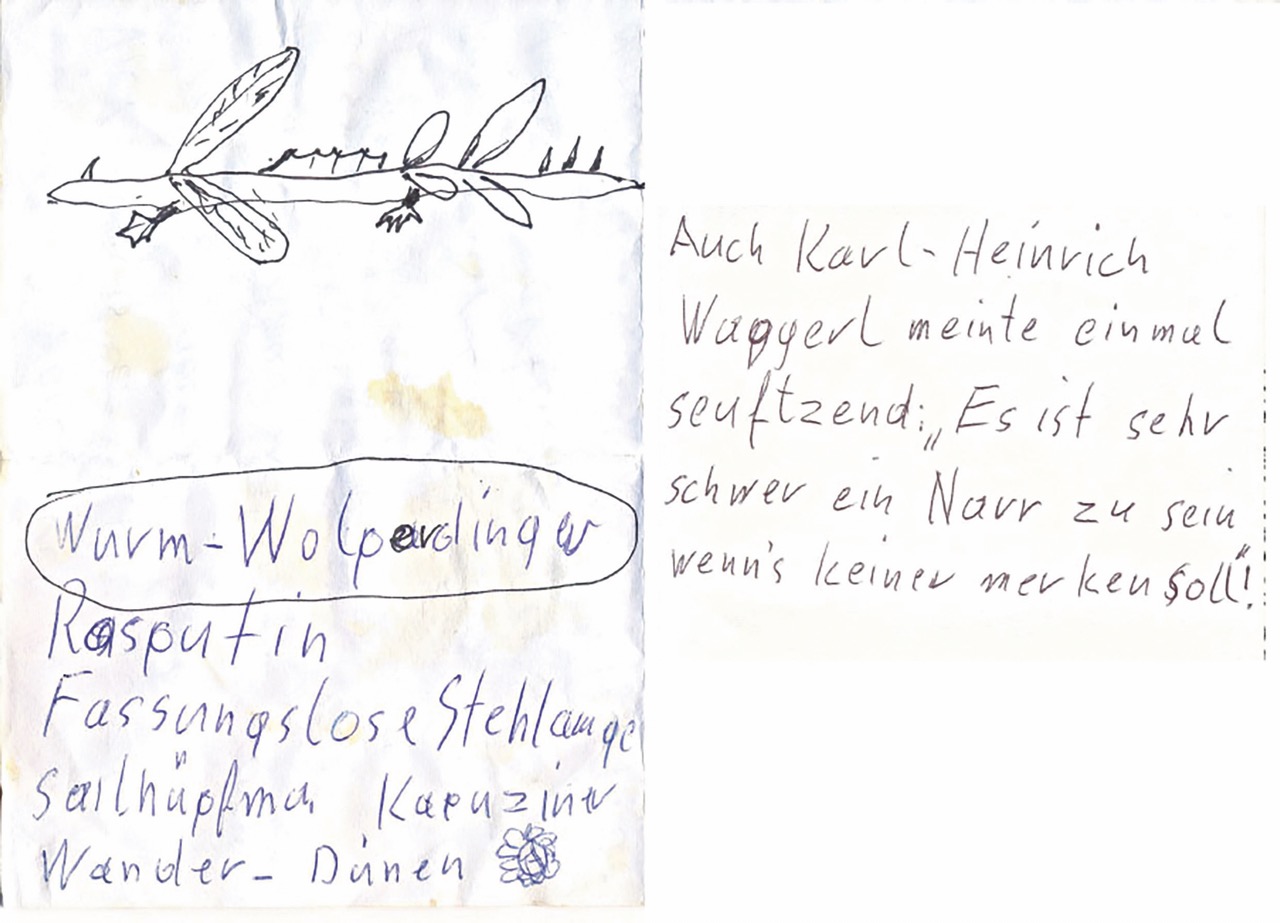 Wurm-Wolperdinger
Rasputin
Fassungslose Stehlampe
Kapuziner
Wander- Dünen
Auch Karl-Heinrich
Waggerl meinte einmal
seuftzend: „Es ist sehr
schwer ein Narr zu sein
wenn's keiner merken soll"!